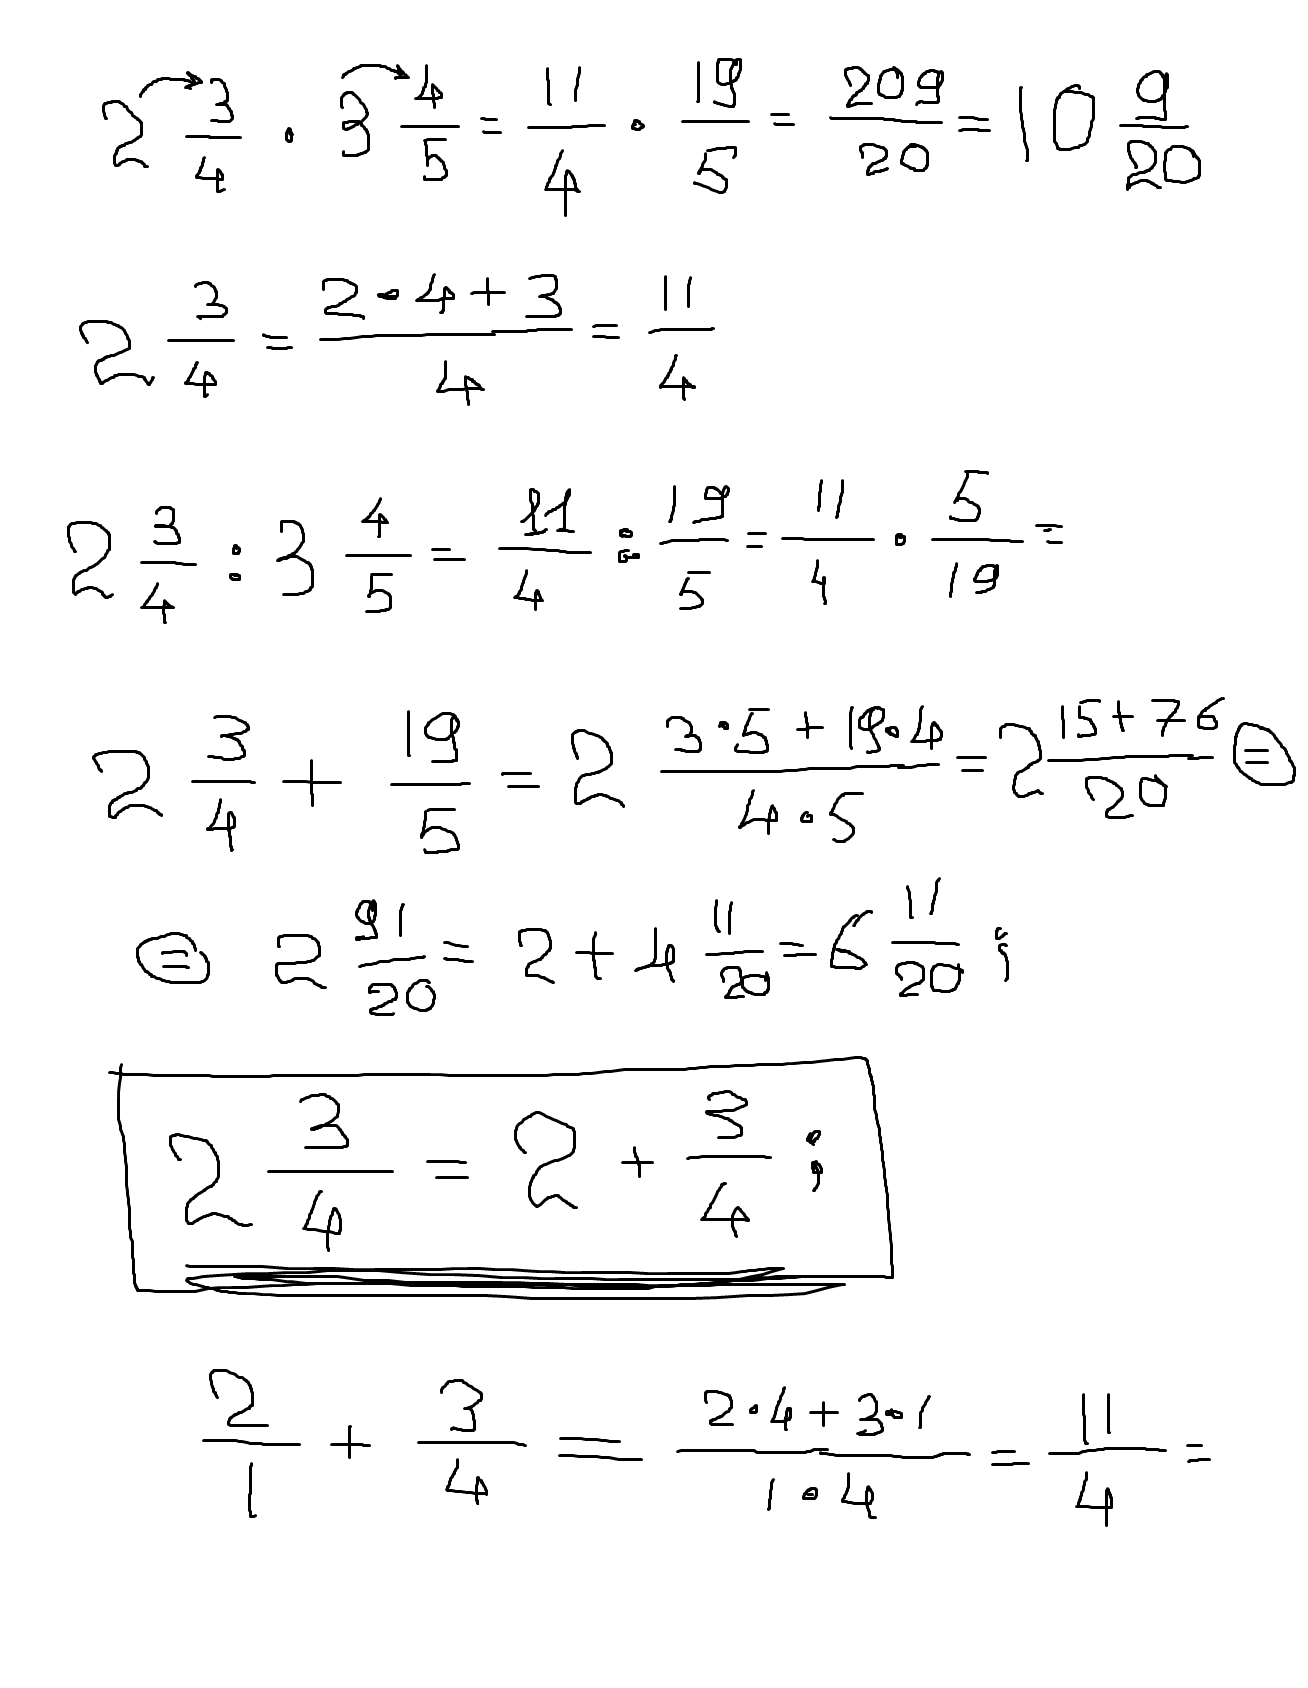 2 3/4 · 3 4/5 = 11/4 · 19/5 = 209/20 = 10 9/20
2 3/4 = (2·4+3)/4 = 11/4
2 3/4 : 3 4/5 = 11/4 : 19/5 = 11/4 · 5/19 =
2 3/4 + 19/5 = 2 (3·5+19·4)/(4·5) = 2 (15+76)/20 =
= 2 91/20 = 2+4 11/20 = 6 11/20 ;
2 3/4 = 2 + 3/4 ;
2/1 + 3/4 = (2·4+3·1)/(1·4) = 11/4 =